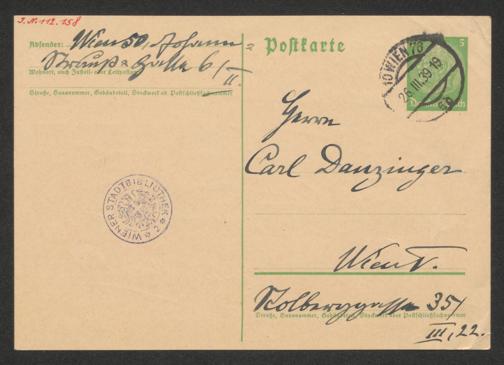 I.N. 112.158
Absender: Wien 50, Johann
Strauß = Gasse 6/
Wohnort, auch Zustell- oder Leitpostamt
II.
Straße, Hausnummer, Gebäudeteil, Stockwerk od. Postschließfachnummer
Postkarte
5
WIEN 73
26.III.39 19
Herrn
Carl Danzinger
WIENER STADTBIBLIOTHEK
Wien V.
Kolberggasse 35/
Straße, Hausnummer, Gebäudeteil, Stockwerk oder Postschließfachnummer
III, 22.